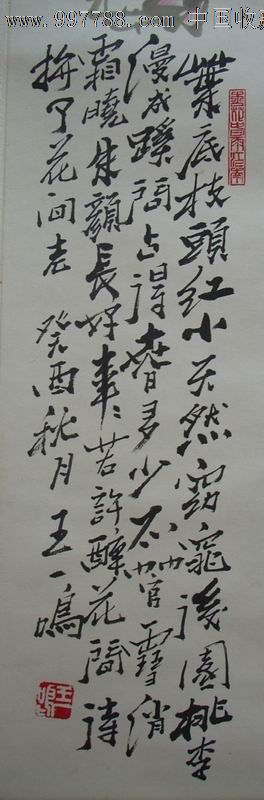 www.997788.com 中国收
葉底枝頭紅小天然窈窕後園桃李
漫成蹊問占得春多少不管雪消
霜曉朱顏長好年々若許醉花間待
拚了花间老 癸酉秋月 王一鳴